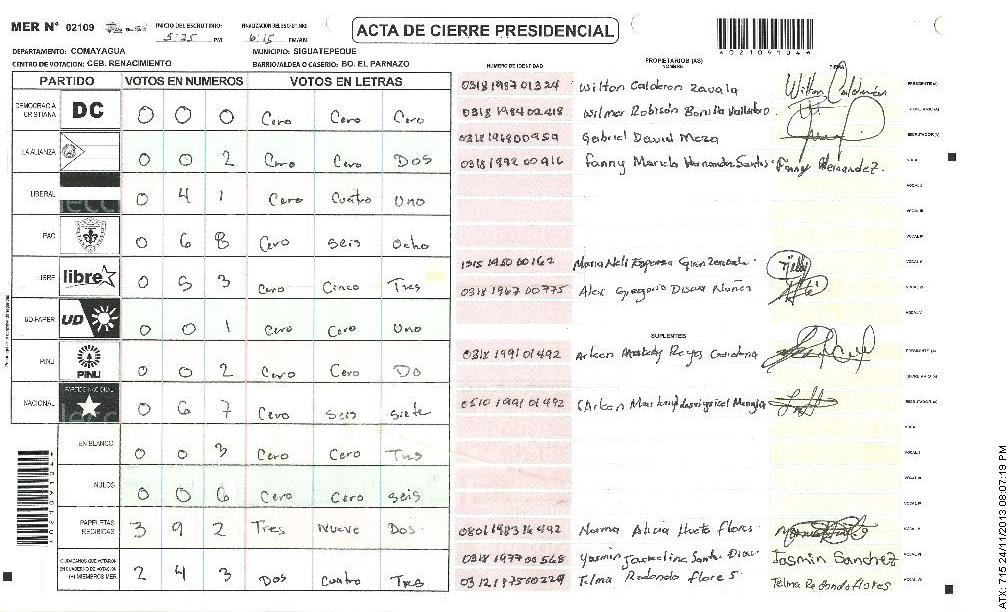 MER N° 02109
INICIO DEL ESCRUTINIO:
5:25 PM
FINALIZACION DEL ESCRUTINIO:
6:15 PM/AM
ACTA DE CIERRE PRESIDENCIAL
DEPARTAMENTO: COMAYAGUA
MUNICIPIO: SIGUATEPEQUE
CENTRO DE VOTACION: CEB. RENACIMIENTO
BARRIO/ALDEA O CASERIO: BO. EL PARNAZO
PARTIDO VOTOS EN NUMEROS VOTOS EN LETRAS
DEMOCRACIA CRISTIANA DC 0 0 0 Cero Cero Cero
LA ALIANZA 0 0 2 Cero Cero Dos
LIBERAL 0 4 1 Cero Cuatro Uno
PAC 0 6 8 Cero Seis Ocho
LIBRE libre 0 5 3 Cero Cinco Tres
UD/FAPER UD 0 0 1 Cero Cero Uno
PINU PINU 0 0 2 Cero Cero Do
NACIONAL PARTIDO NACIONAL 0 6 7 Cero Seis Siete
EN BLANCO 0 0 3 Cero Cero Tres
NULOS 0 0 6 Cero Cero Seis
PAPELETAS RECIBIDAS 3 9 2 Tres Nueve Dos
CIUDADANOS QUE VOTARON EN CUADERNO DE VOTACION (+) MIEMBROS MER 2 4 3 Dos Cuatro Tres
NUMERO DE IDENTIDAD
PROPIETARIOS (AS)
NOMBRE
FIRMA
0318 1987 01324 Wilton Calderon Zavala Wilton Calderón PRESIDENTE(A)
0318 1984 02418 Wilmer Robison Bonilla
0318 1968 00959 Gabriel David Meza ESCRUTADOR(A)
0318 1992 00916 Fanny Mariela Hernandez Santos Fanny Hernandez. VOCAL I
VOCAL II
VOCAL III
VOCAL IV
1515 1950 00162 Maria Neli Esperza VOCAL V
0318 1967 00775 Alex Gregorio Discua Nuñez VOCAL VI
SUPLENTES
0318 1991 01492 Arleen Reyes PRESIDENTE (A)
SECRETARIO (A)
0510 1991 01492 ESCRUTADOR(A)
VOCAL I
VOCAL II
VOCAL III
VOCAL IV
0801 1983 14492 Norma Alicia Hueto Flores
0318 1977 00568 Yasmin Jacqueline Santos Diaz Jasmin Sanchez VOCAL VI
Telma Redondo Flores Telma Redondo flores VOCAL VII
ATX: 715 24/11/2013 08:07:19 PM